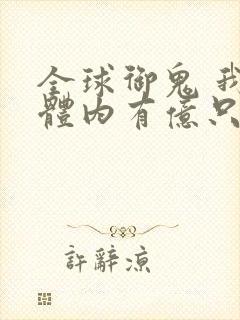 全球御鬼 我
體內有億只
許辭凉